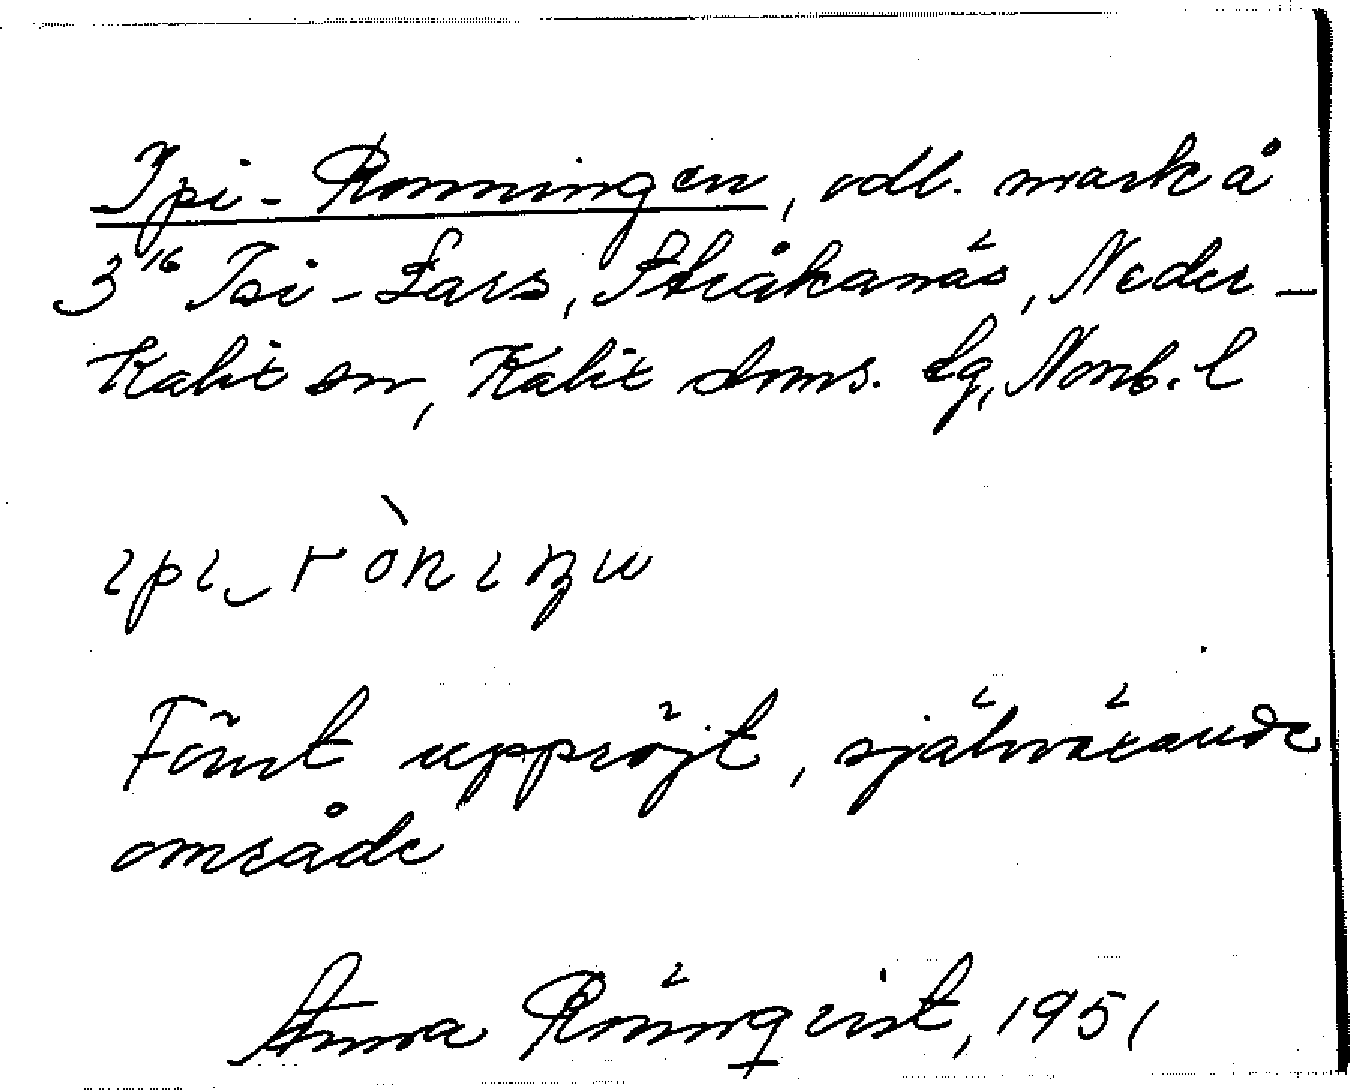 Ipi-Ronningen, odl. mark å
3¹⁶ Isi-Lars, Stråkanäs, Neder-
Kalix sn, Kalix doms. lg, Norrb. l
ɩpɩ‿rònɩŋu
Först uppröjt, självärande
område
Anna Rönnqvist, 1951